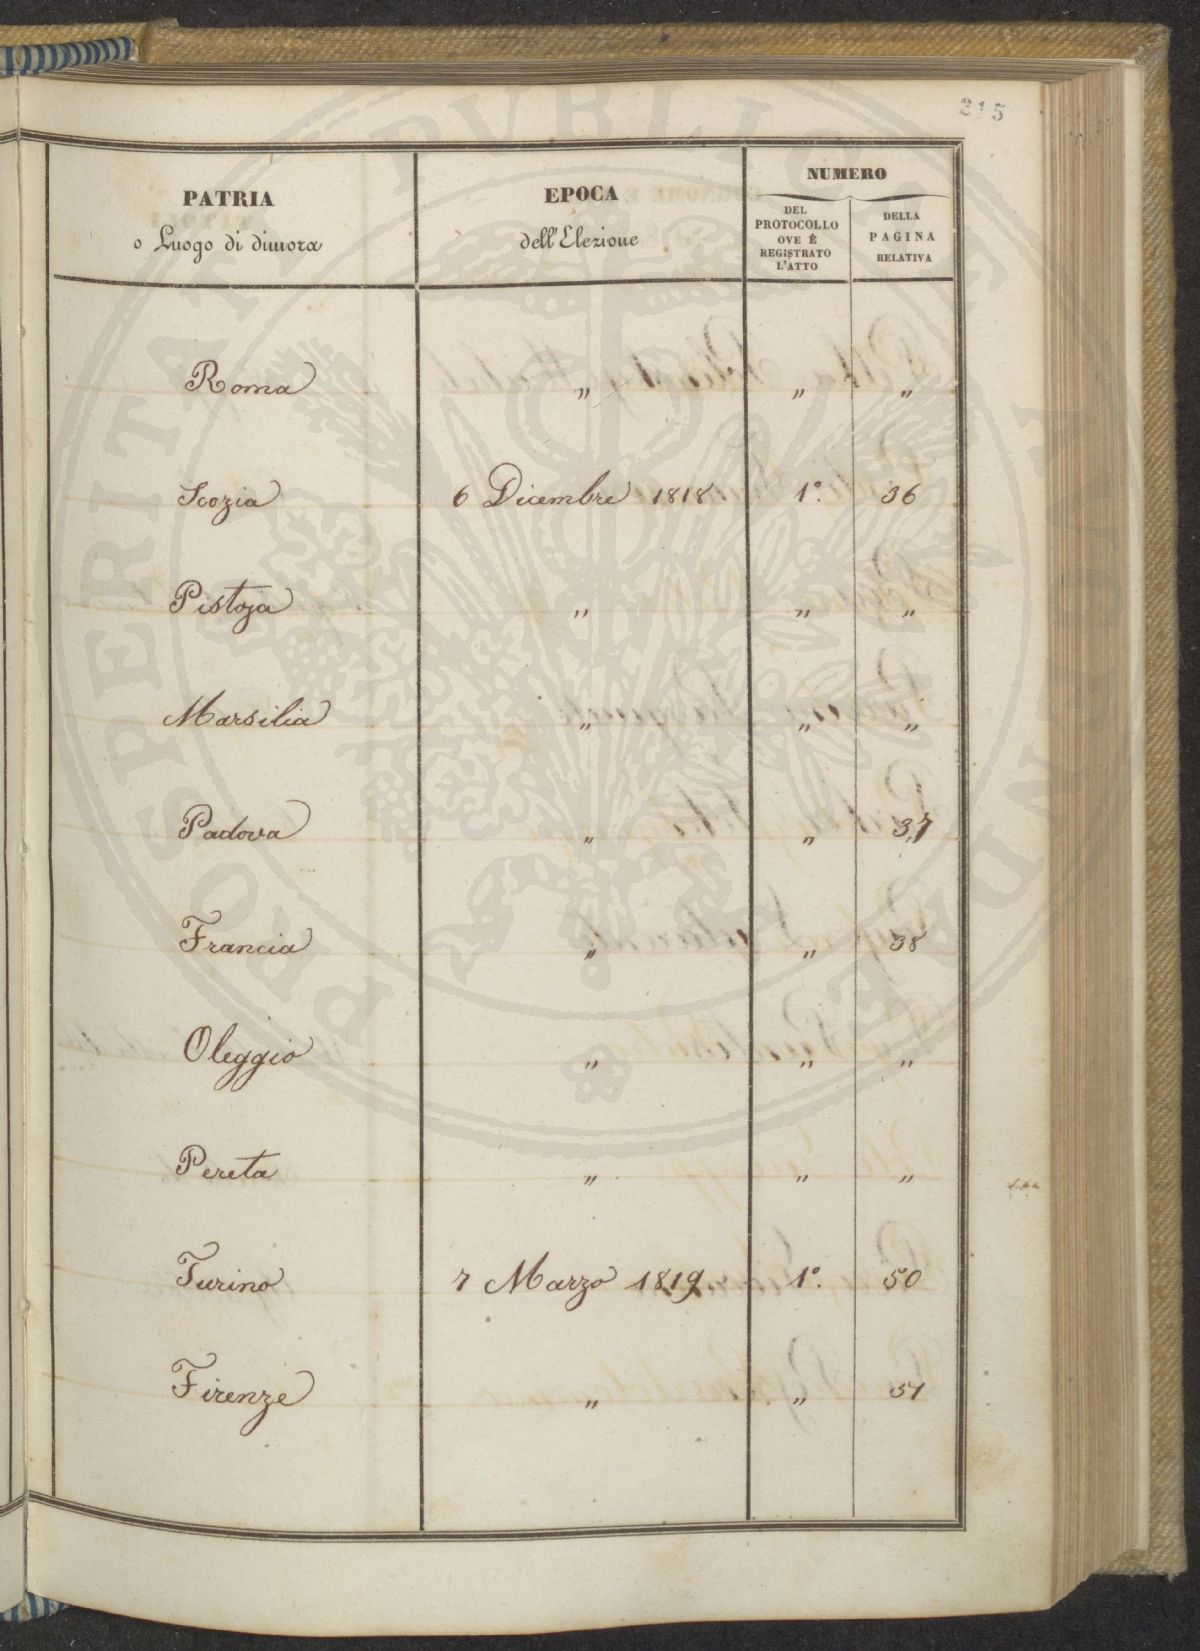 215
PATRIA
o Luogo di dimora
EPOCA
dell'Elezione
NUMERO
DEL
PROTOCOLLO
OVE È
REGISTRATO
L'ATTO
DELLA
PAGINA
RELATIVA
Roma " " "
Scozia 6 Dicembre 1818 1°. 36
Pistoja " " "
Marsilia " " "
Padova " " 37
Francia " " 38
Oleggio " " "
Pereta " " "
Turino 7 Marzo 1819 1°. 50
Firenze " " 51
PROSPERITATI PUBLICAE AUGENDAE